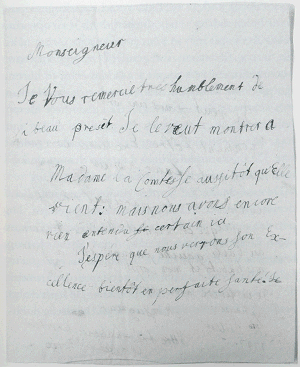 Monseigneur
Je Vous remercie tres humblement de
i beau preset Je le veut montrer a
Madame la Comtesse ausitôt qu'Elle
vient: mais nous avons encore
rien entendu certain ici
J'espere que nous verrons son Ex-
cellence bientôt en parfaite santé.